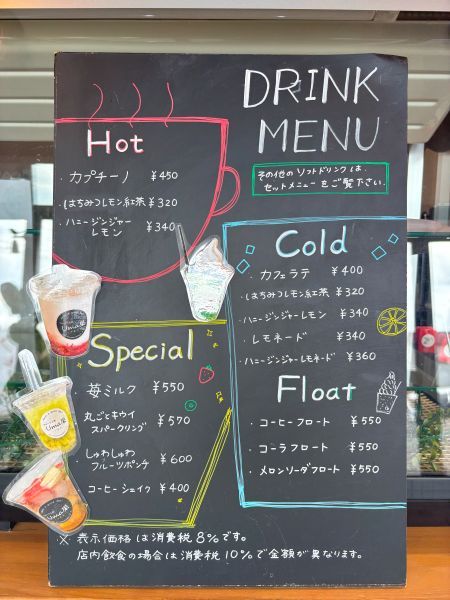 DRINK
MENU
その他のソフトドリンクは、
セットメニューをご覧下さい。
Hot
・カプチーノ ¥450
・はちみつレモン紅茶 ¥320
・ハニージンジャー
レモン ¥340
Cold
・カフェラテ ¥400
・はちみつレモン紅茶 ¥320
・ハニージンジャーレモン ¥340
・レモネード ¥340
・ハニージンジャーレモネード ¥360
Special
・苺ミルク ¥550
・丸ごとキウイ
スパークリング ¥570
・しゅわしゅわ
フルーツポンチ ¥600
・コーヒーシェイク ¥400
Float
・コーヒーフロート ¥550
・コーラフロート ¥550
・メロンソーダフロート ¥550
※ 表示価格は消費税8%です。
店内飲食の場合は消費税10%で金額が異なります。